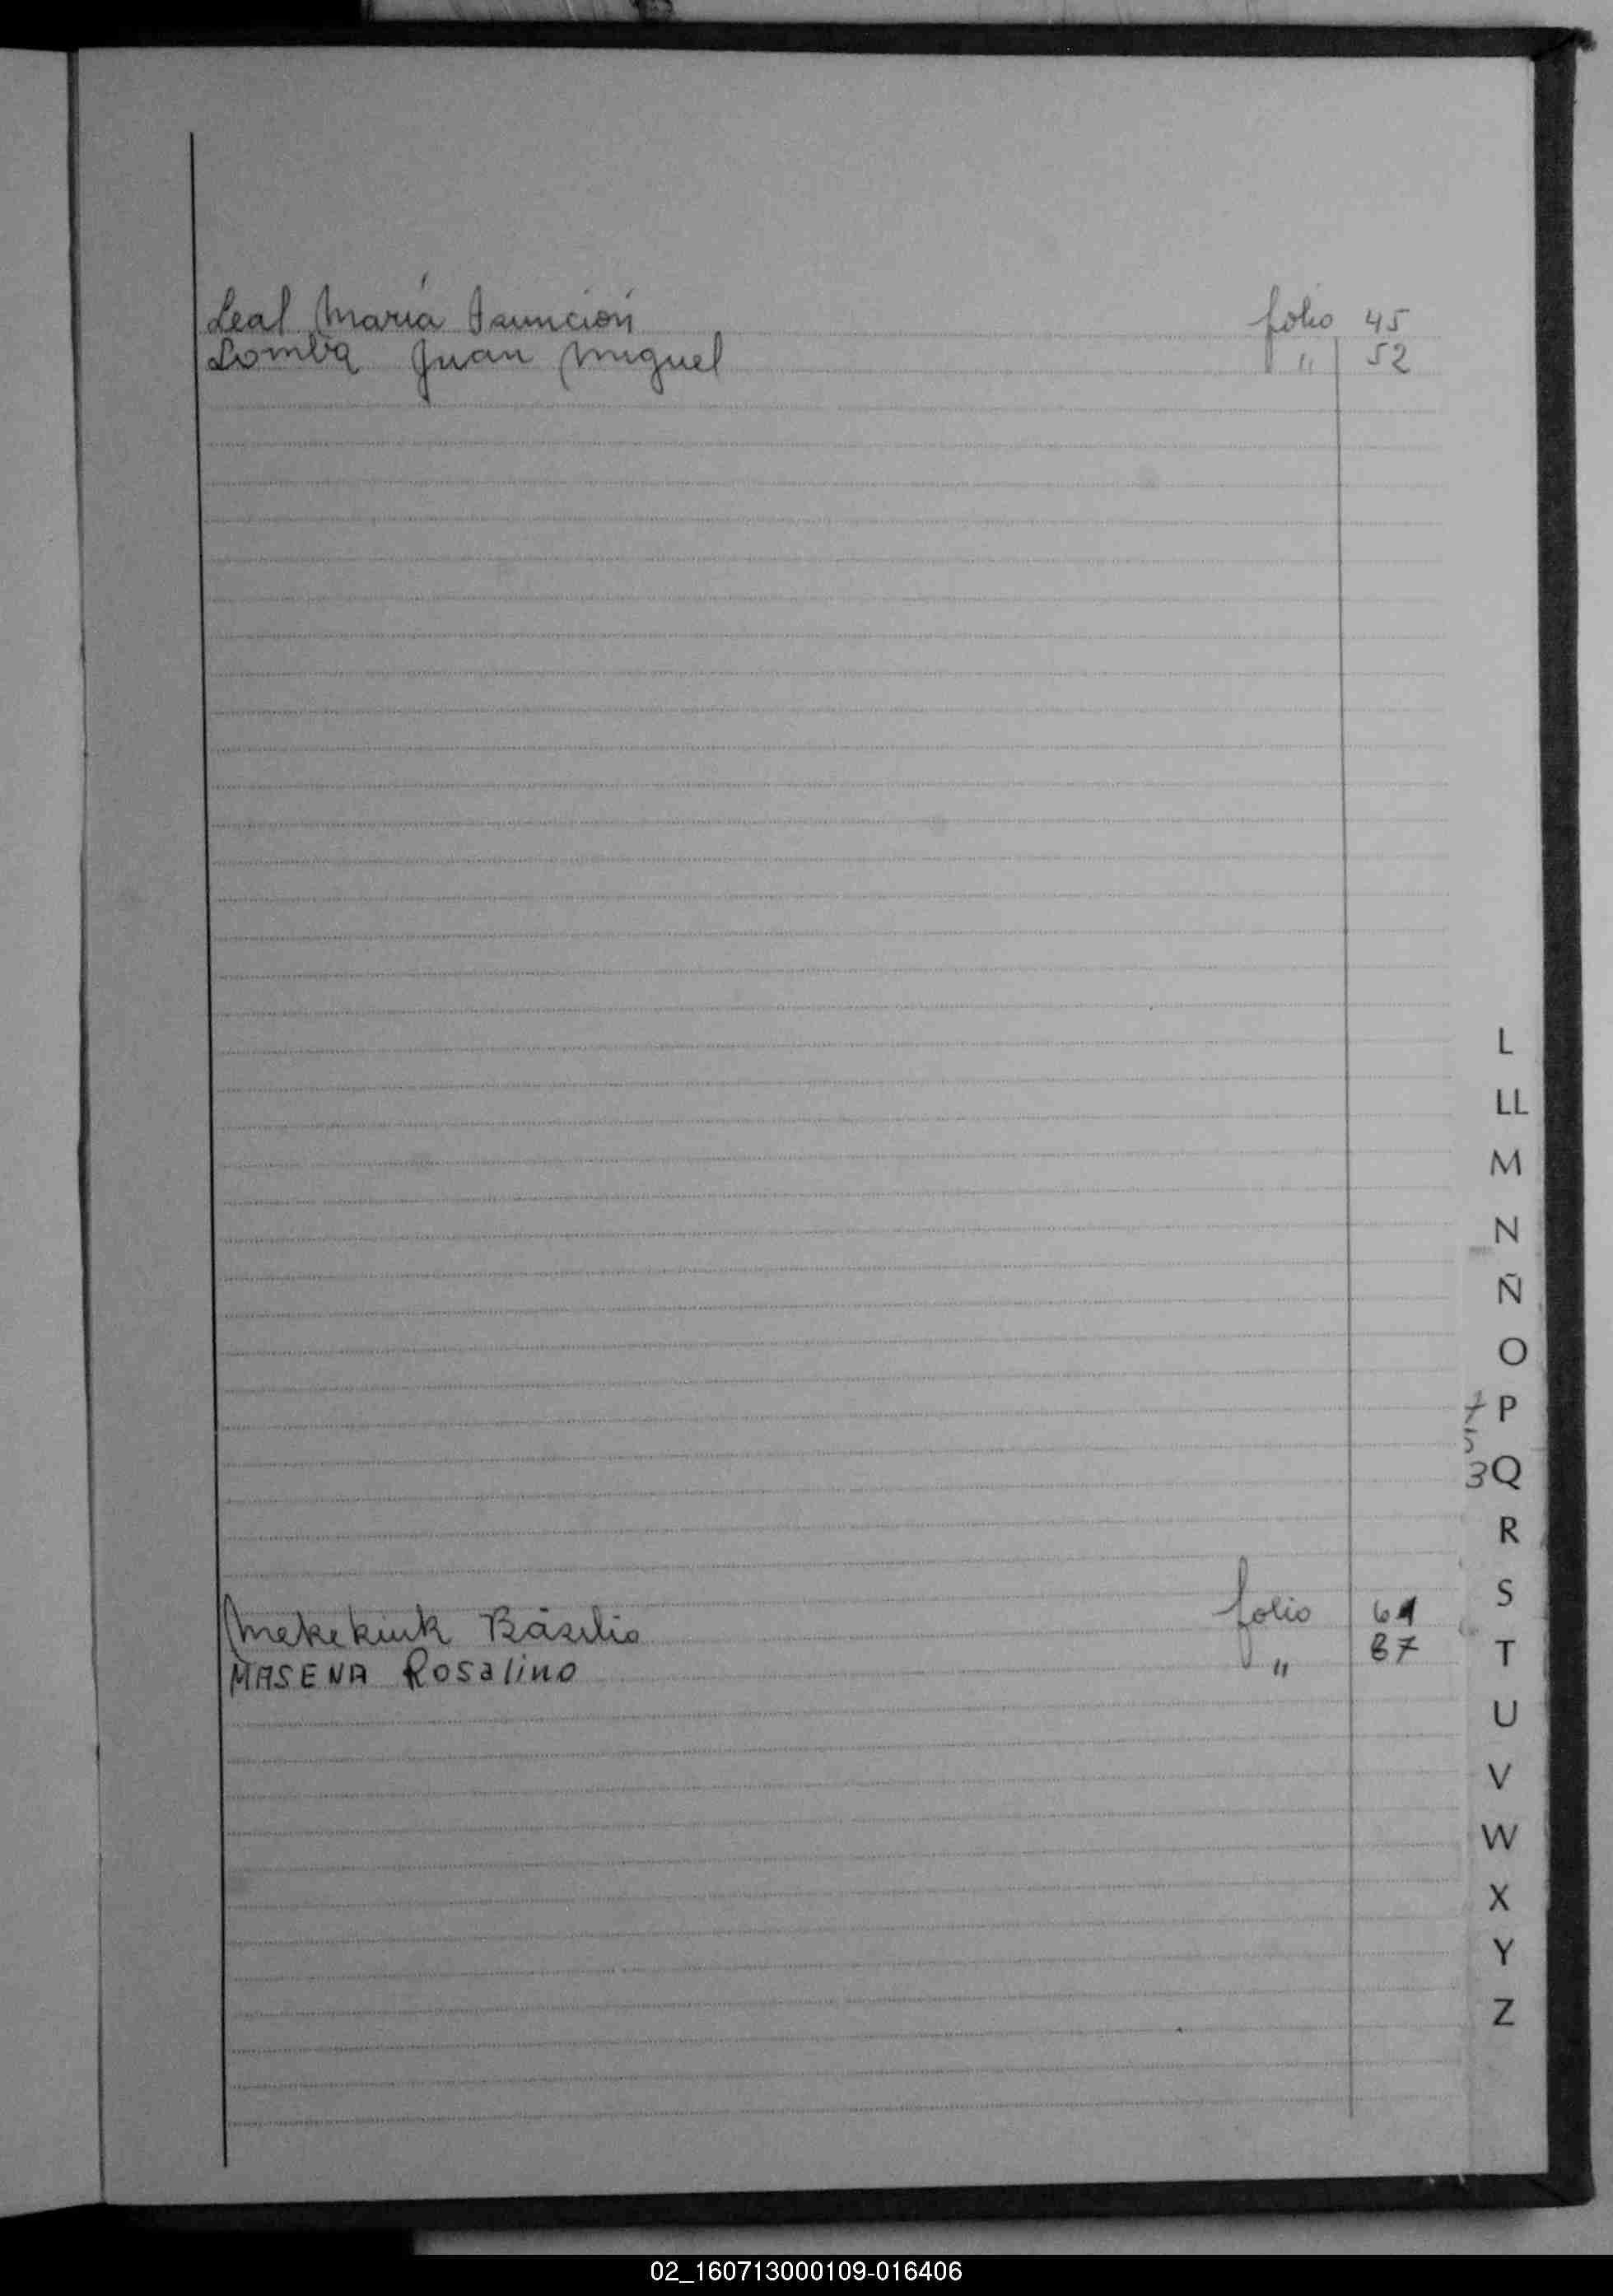 Leal María Asunción folio 45
Lomba Juan Miguel " 52
L
LL
M
N
Ñ
O
7 P
5
3 Q
R
S
Mekekiuk Básilio folio 61
MASENA Rosalino " 87
T
U
V
W
X
Y
Z
02_160713000109-016406